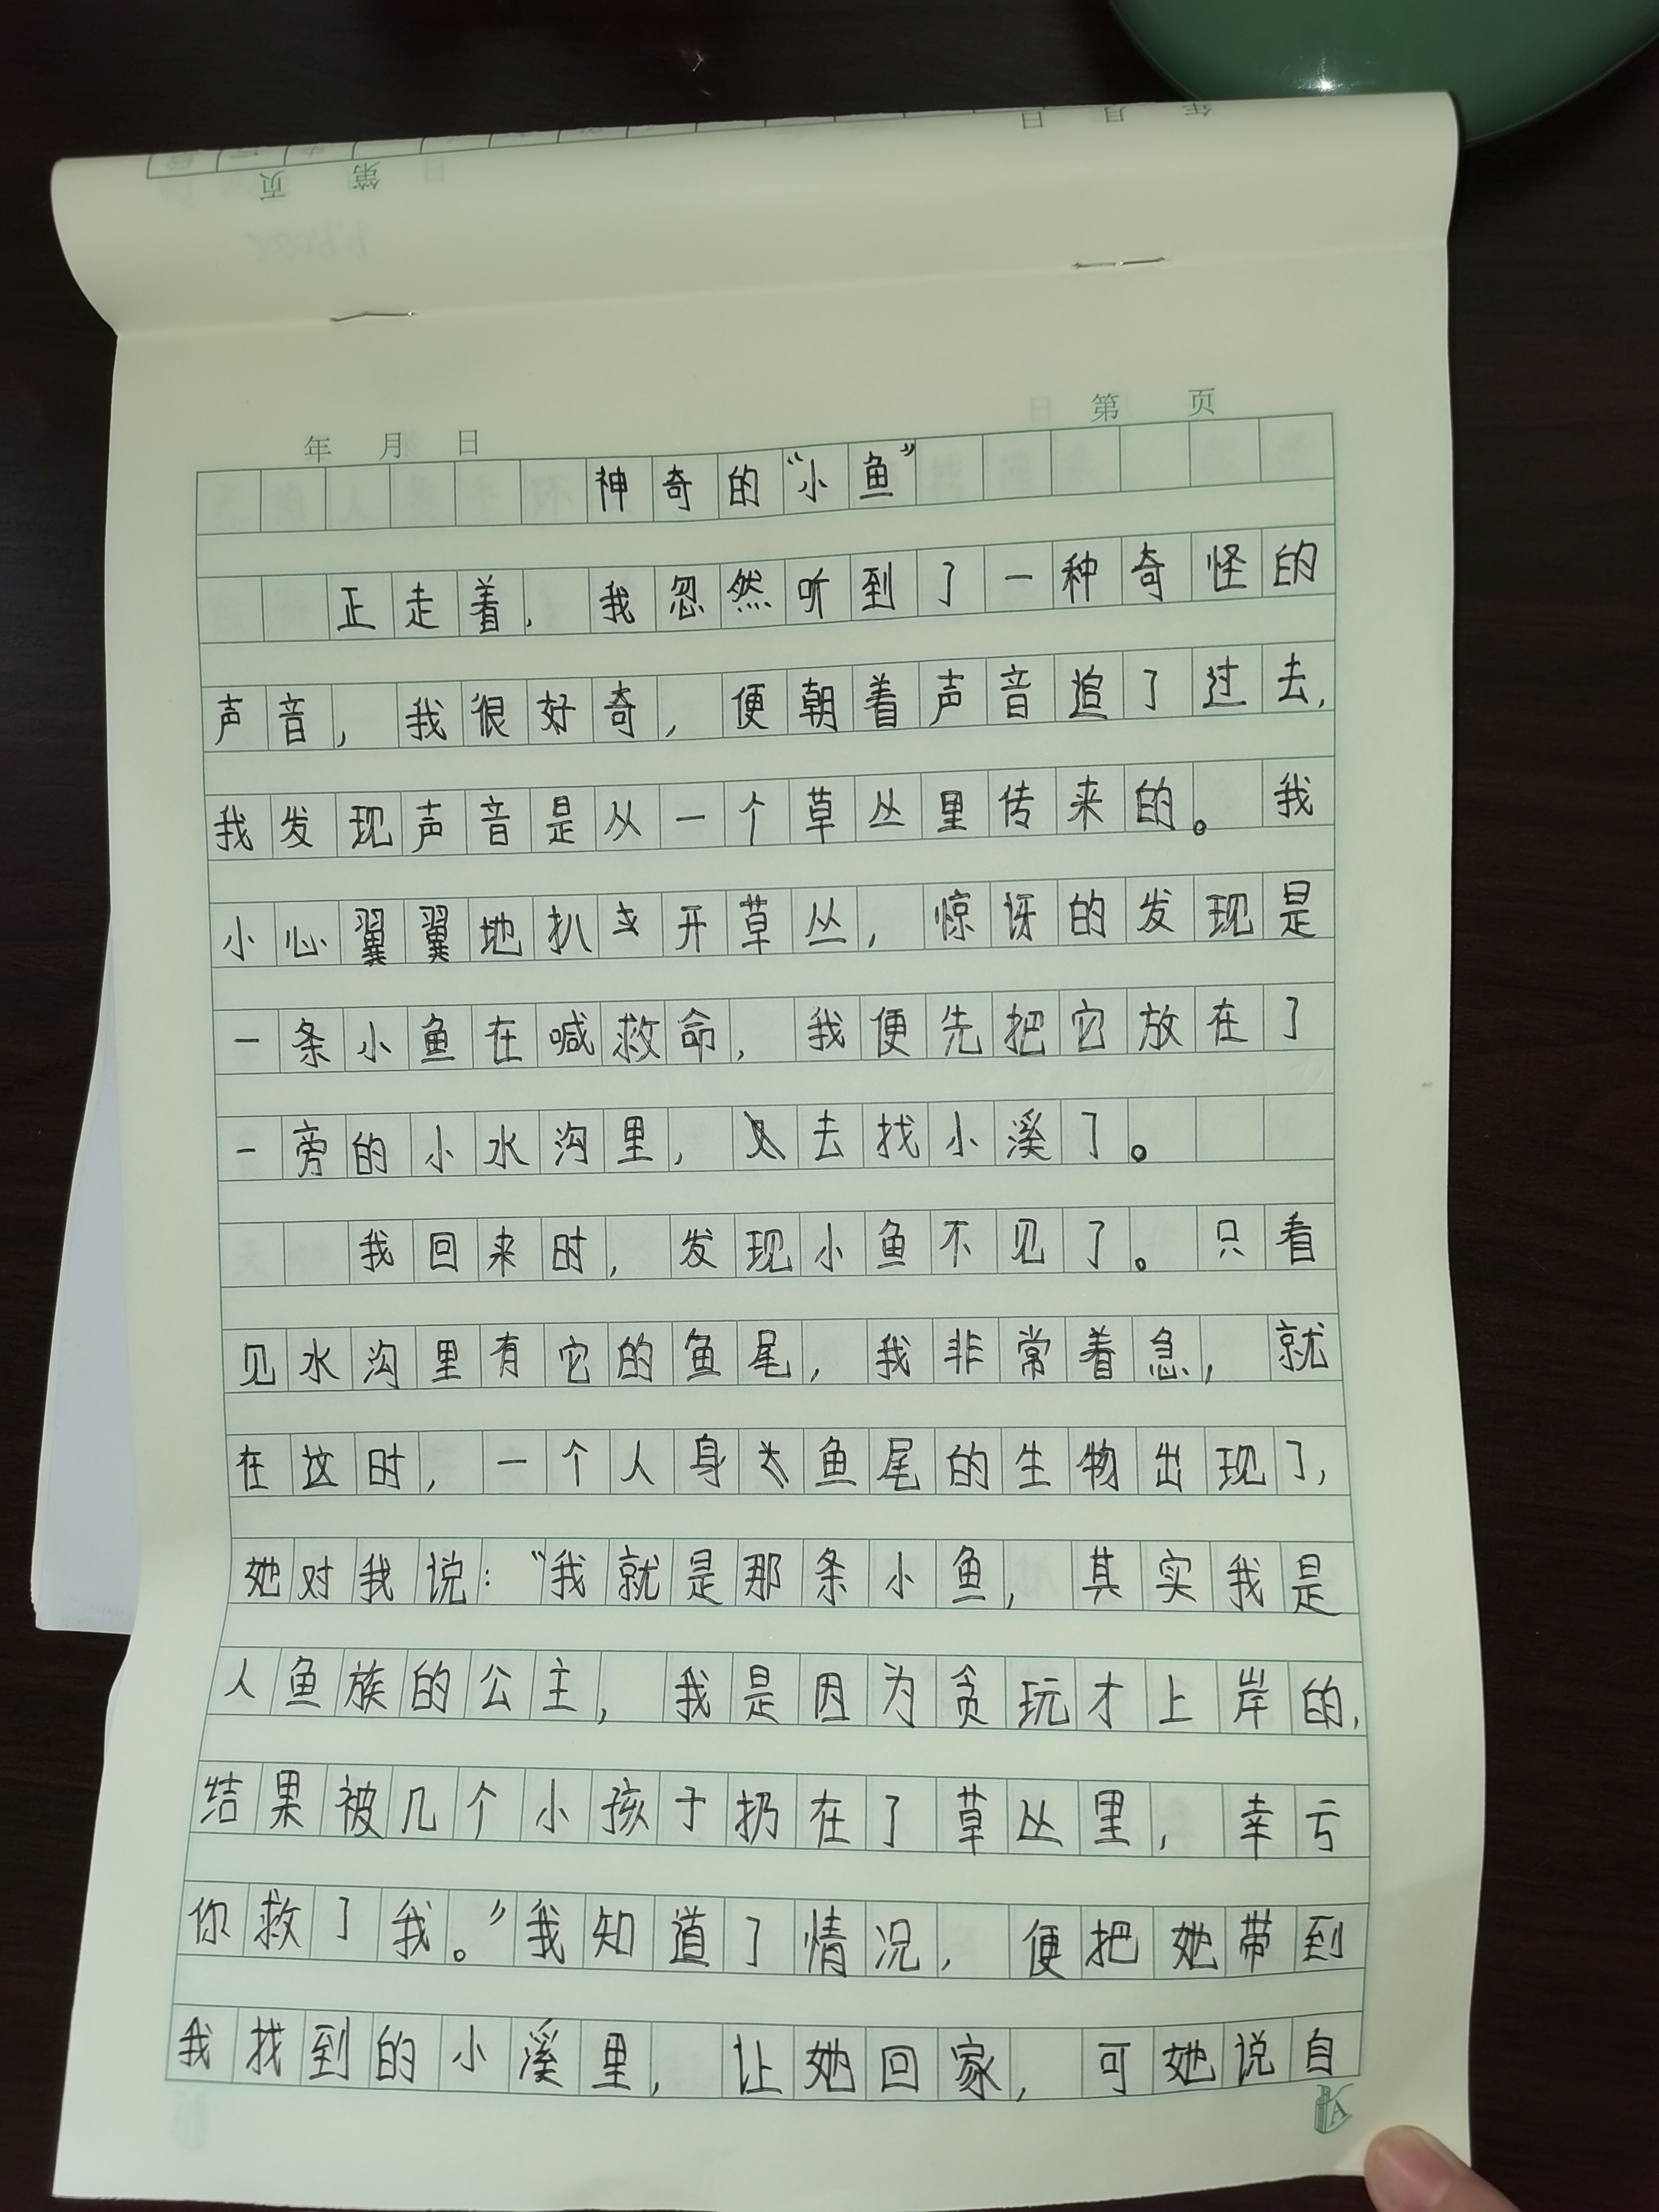 年 月 日 第 页
神奇的“小鱼”
正走着，我忽然听到了一种奇怪的
声音，我很好奇，便朝着声音追了过去，
我发现声音是从一个草丛里传来的。我
小心翼翼地扒开草丛，惊讶的发现是
一条小鱼在喊救命，我便先把它放在了
一旁的小水沟里，去找小溪了。
我回来时，发现小鱼不见了。只看
见水沟里有它的鱼尾，我非常着急，就
在这时，一个人身鱼尾的生物出现了，
她对我说：“我就是那条小鱼，其实我是
人鱼族的公主，我是因为贪玩才上岸的，
结果被几个小孩子扔在了草丛里，幸亏
你救了我。”我知道了情况，便把她带到
我找到的小溪里，让她回家，可她说自